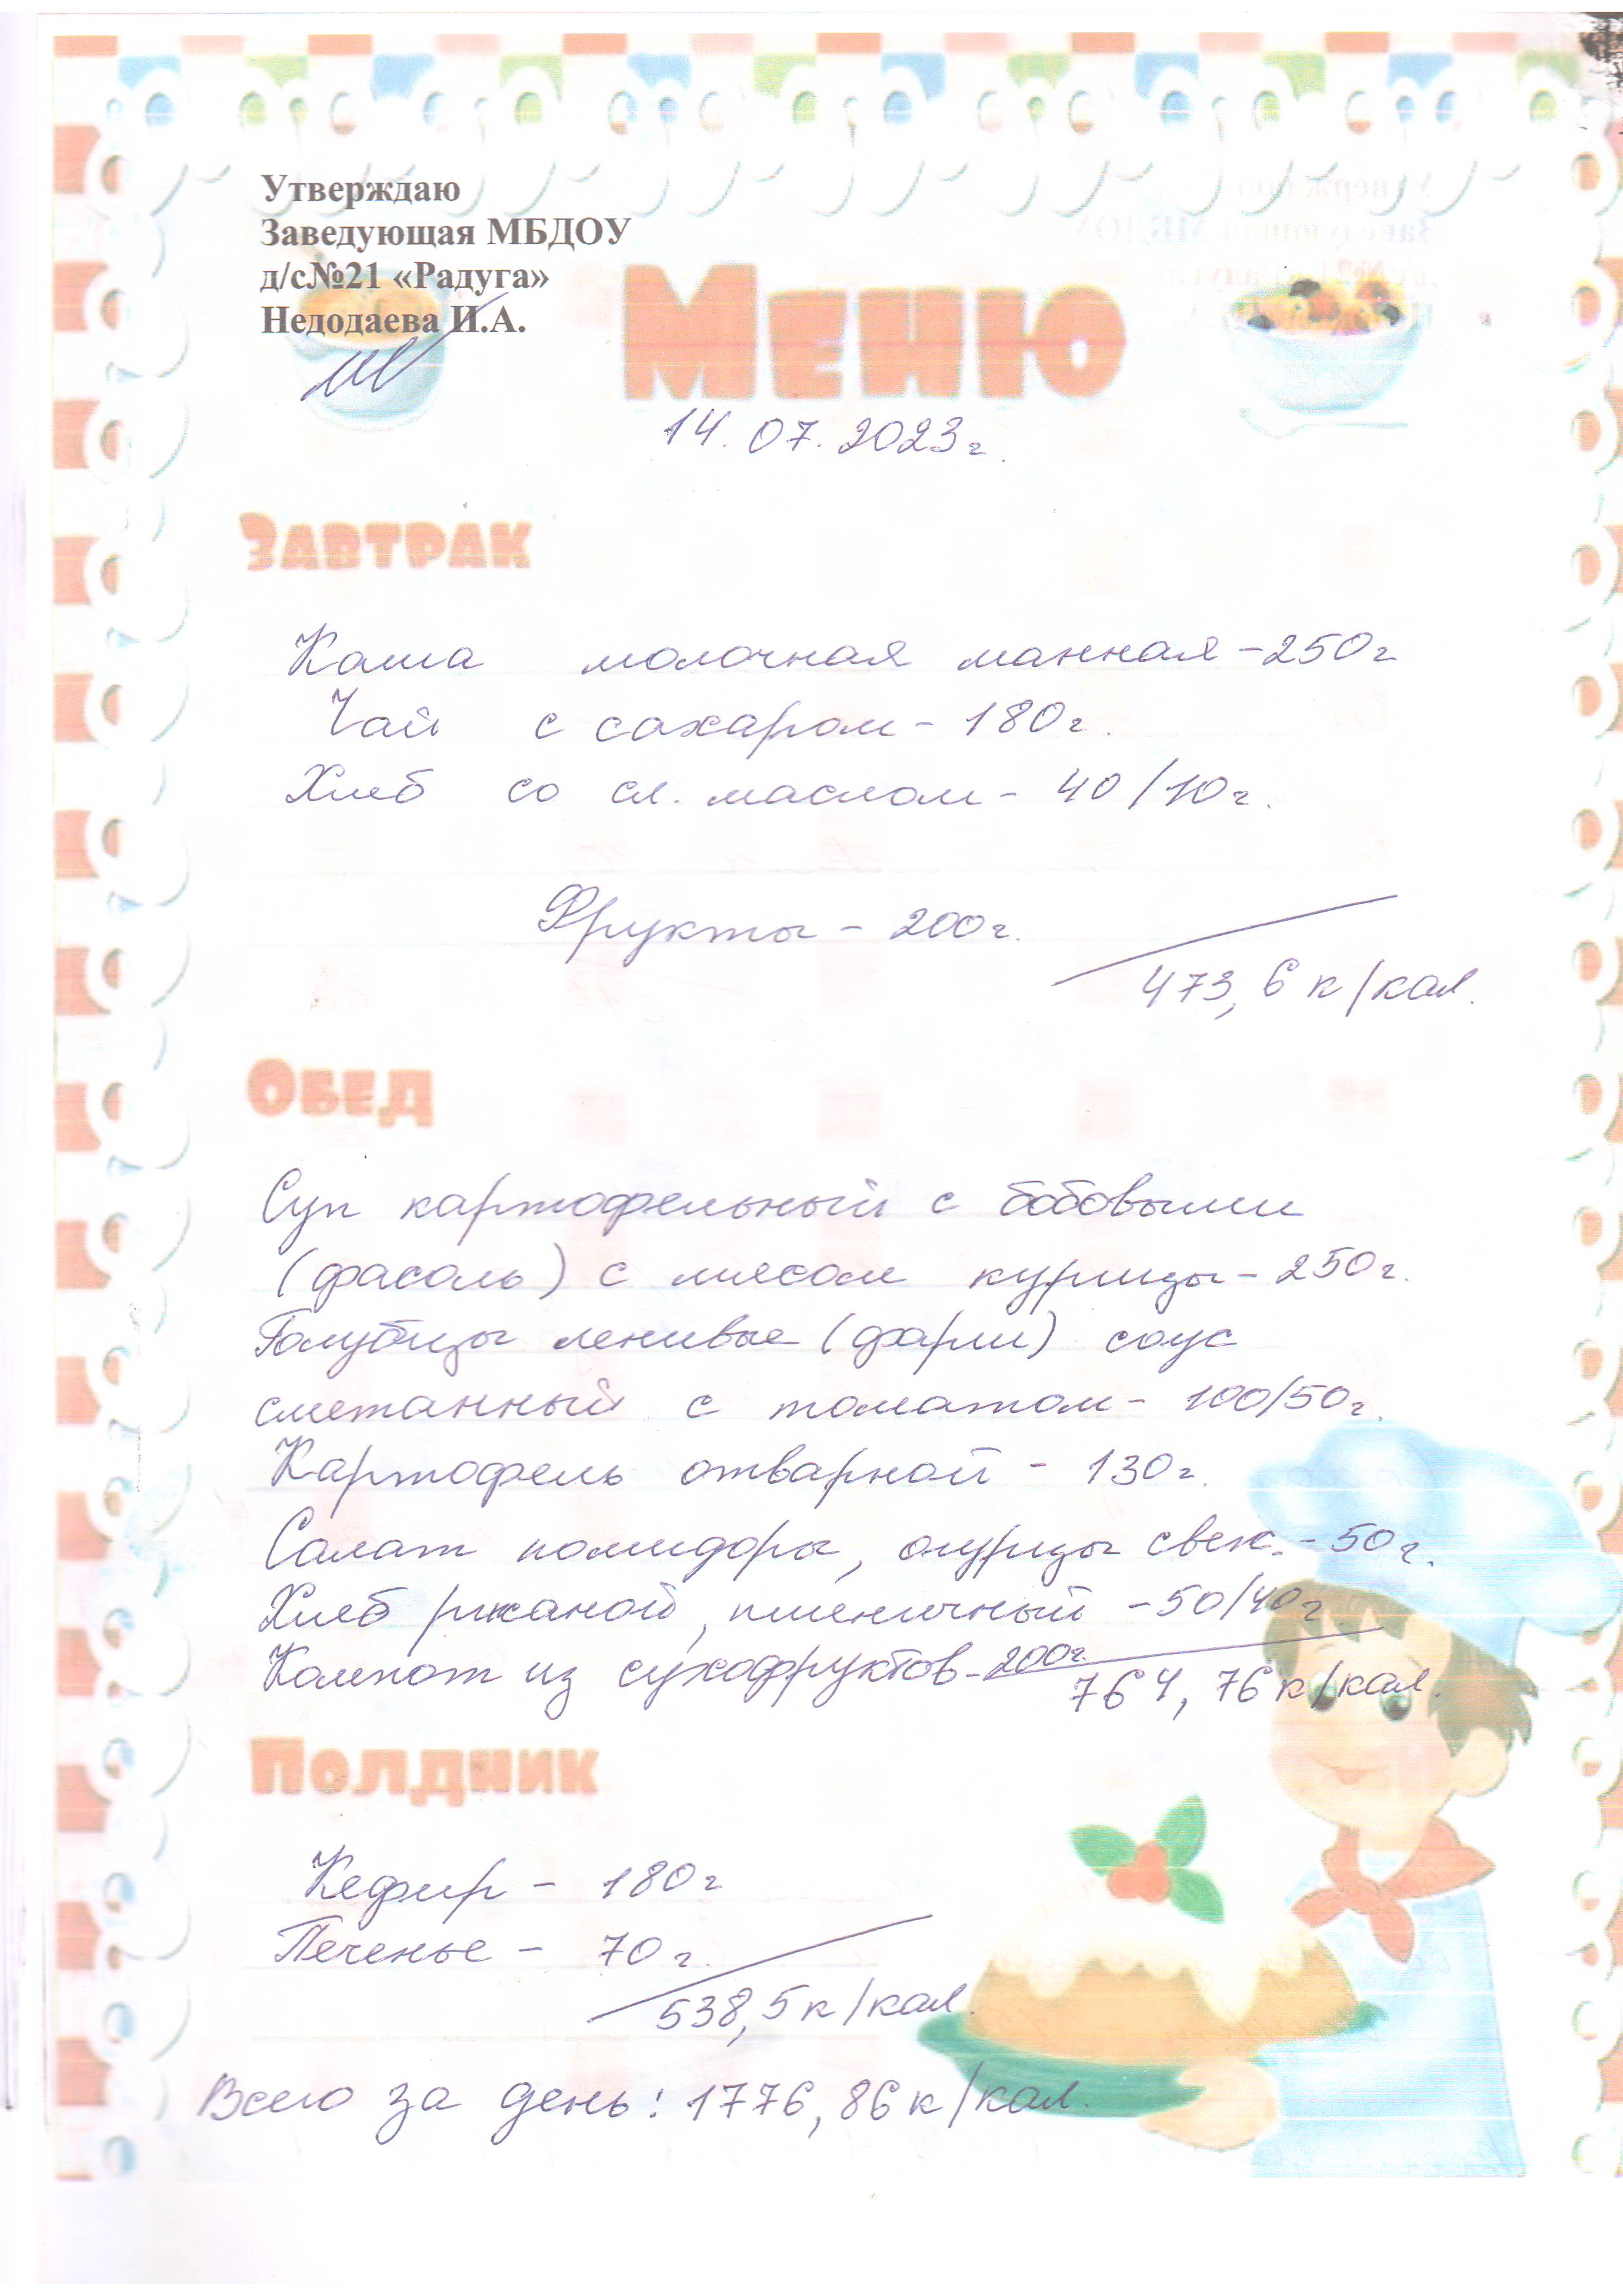 Утверждаю
Заведующая МБДОУ
д/с№21 «Радуга»
Недодаева И.А.
Меню
14.07.2023г.
Завтрак
Каша молочная манная-250г
Чай с сахаром- 180г.
Хлеб со сл. маслом- 40/10г.
Фрукты - 200г.
473,6 к/кал.
Обед
Суп картофельный с бобовыми
(фасоль) с мясом курицы- 250г.
Голубцы ленивые (фарш) соус
сметанный с томатом- 100/50г.
Картофель отварной - 130г.
Салат помидоры, огурцы свеж.-50г.
Хлеб ржаной, пшеничный -50/40г
Компот из сухофруктов-200г.
764,76к/кал.
Полдник
Кефир - 180г
Печенье - 70г.
538,5к/кал.
Всего за день: 1776,86к/кал.